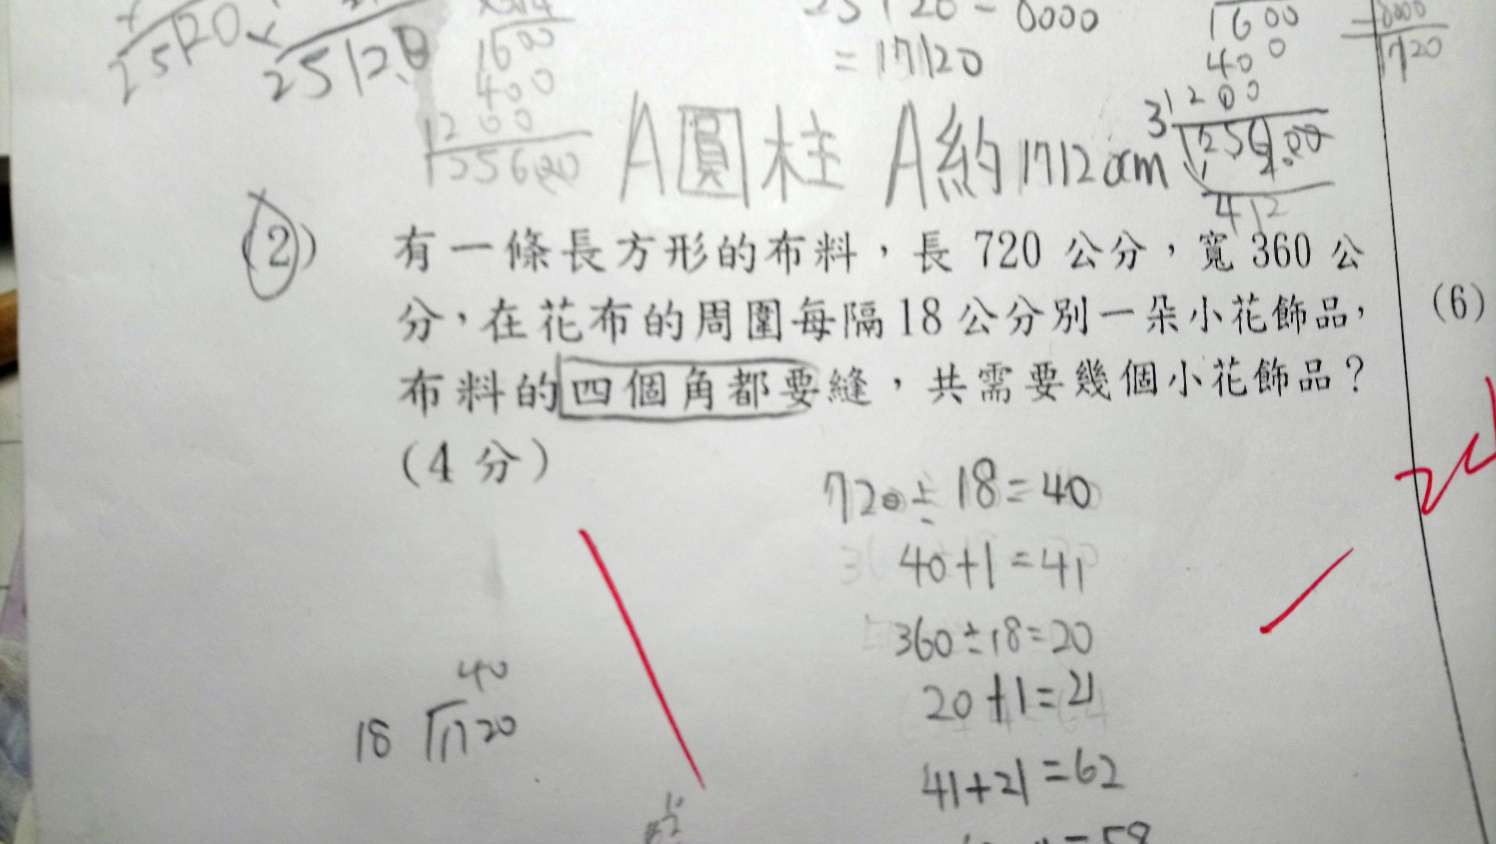 25120
25120
1600
400
1200
125600
= 17120
A圓柱 A約1712cm
1600
400
31200
8000
1720
412
(2) 有一條長方形的布料，長 720 公分，寬 360 公
分，在花布的周圍每隔18公分別一朵小花飾品，
布料的四個角都要縫，共需要幾個小花飾品？
(4 分)
(6)
720÷18=40
40+1=41
360÷18=20
20+1=21
41+21=62
=58
40
18 720